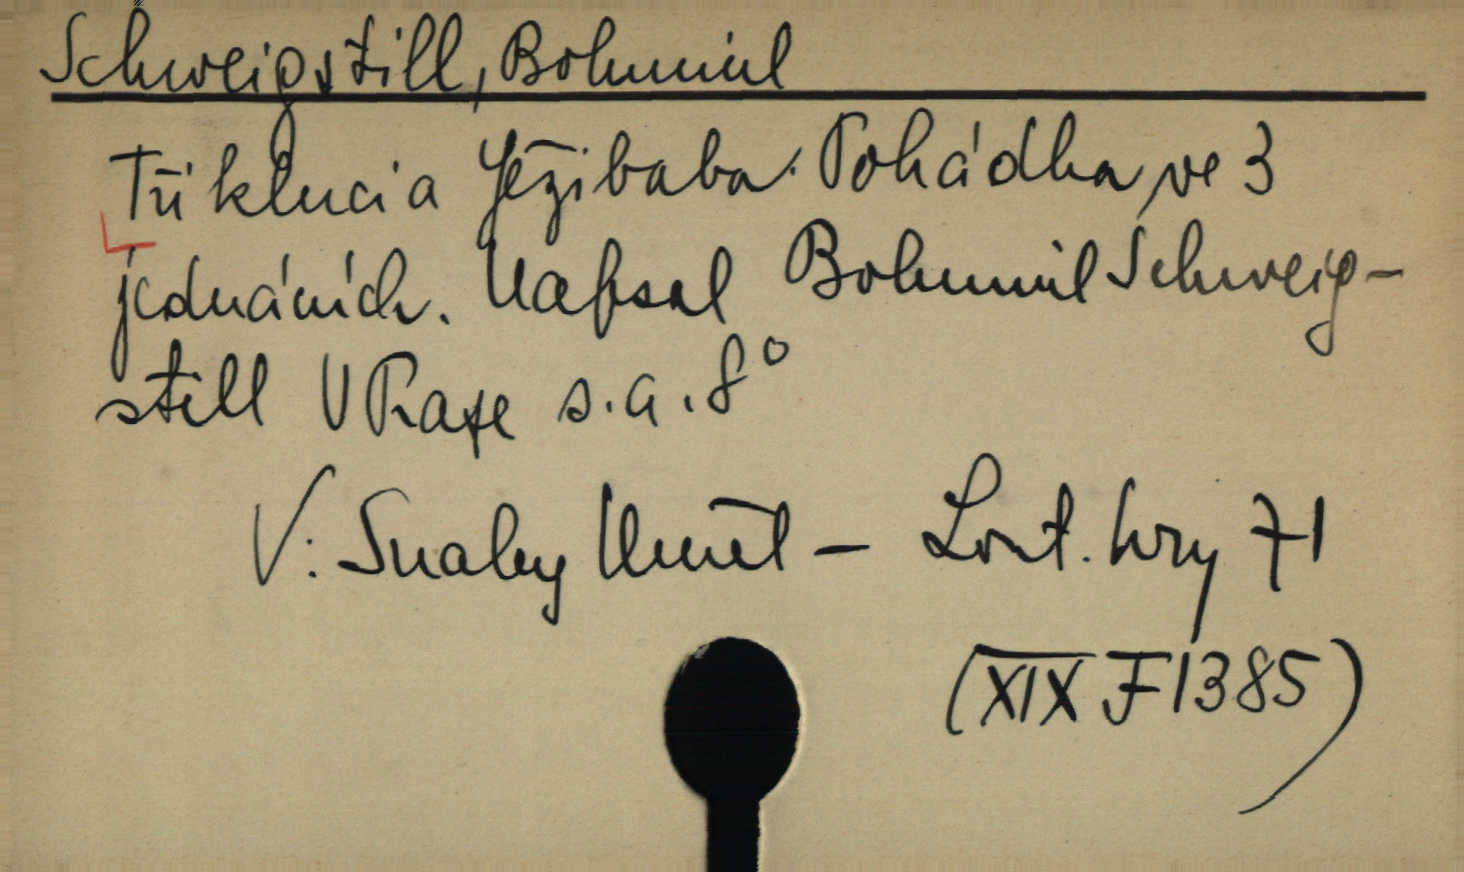 Schweigstill, Bohumil
Tři kluci a Ježibaba. Pohádka ve 3
jednáních. Napsal Bohumil Schweig-
still V Praze s.a. 8°
V: Snahy Uměl – Lout. hry 71
(XIX F 1385)